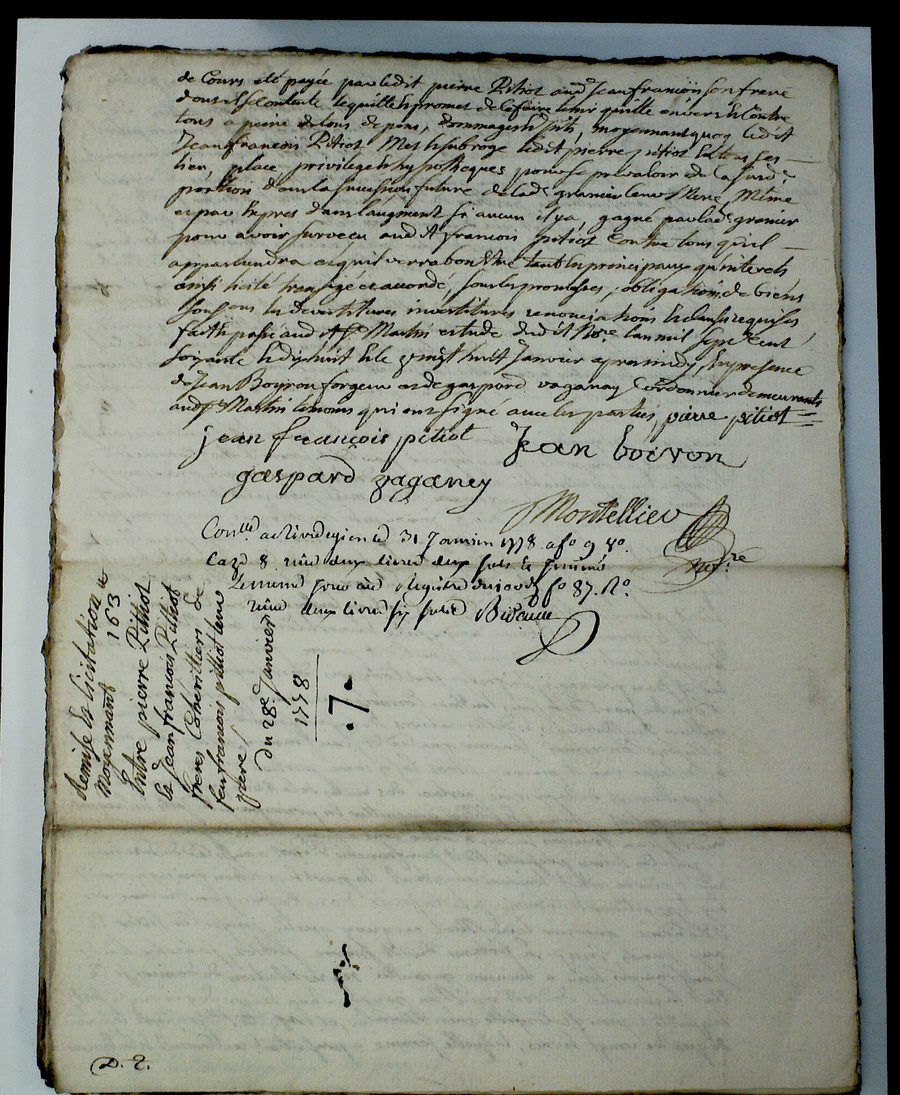 de Cours eté payée par ledit pierre Pitiot audt Jean françois son frere
dont il se Contente le quitte & promet de le faire tenir quitte envers & Contre
tous a peine de tous depens, dommages & jnts, moyennant quoy ledit
Jean francois Pitiot Met & subroge ledit pierre pitiot En tous ses
lieu, place, privileges & hypotheques pour se prevaloir de la susde
portion dans la succession future de lade granier leur Mere, Même
et par Exprès dans l'augment si aucun il y a, gagné par lade granier
pour avoir survecu audit françois pitiot Contre tous qu'il
appartiendra et qu'il verra bon Etre tant En principaux qu'interets
ainsi traité et accordé, sous les promesses, obligations, de biens
sous renonciations & clauses requises
fait & passé audit st Martin etude dudit Nore. l'an mil sept Cent
soixante & dix huit & le vingt huit Janvier apres midy, En presence
de Jean Boyron forgeur et de gaspard vaganay Cordonnier demeurants
audt st Martin temoins qui ont signé avec les parties, pierre pitiot
jean françois pitiot Jean boiron
gaspard vaganey
Montellier
nore
Conllé a Rivedegier le 31 Janvier 1778 a fo 9 Vo.
Caze 8. reçu deux livres deux sols
fo 87. Ro.
reçu deux livres six sols
Remise de licitation
moyennant 163
Entre pierre Pithiot
& Jean francois Pithiot
freres Coheritiers de
feu francois pithiot leur
pere
du 28e. Janvier
1778
.7.
D. 2.